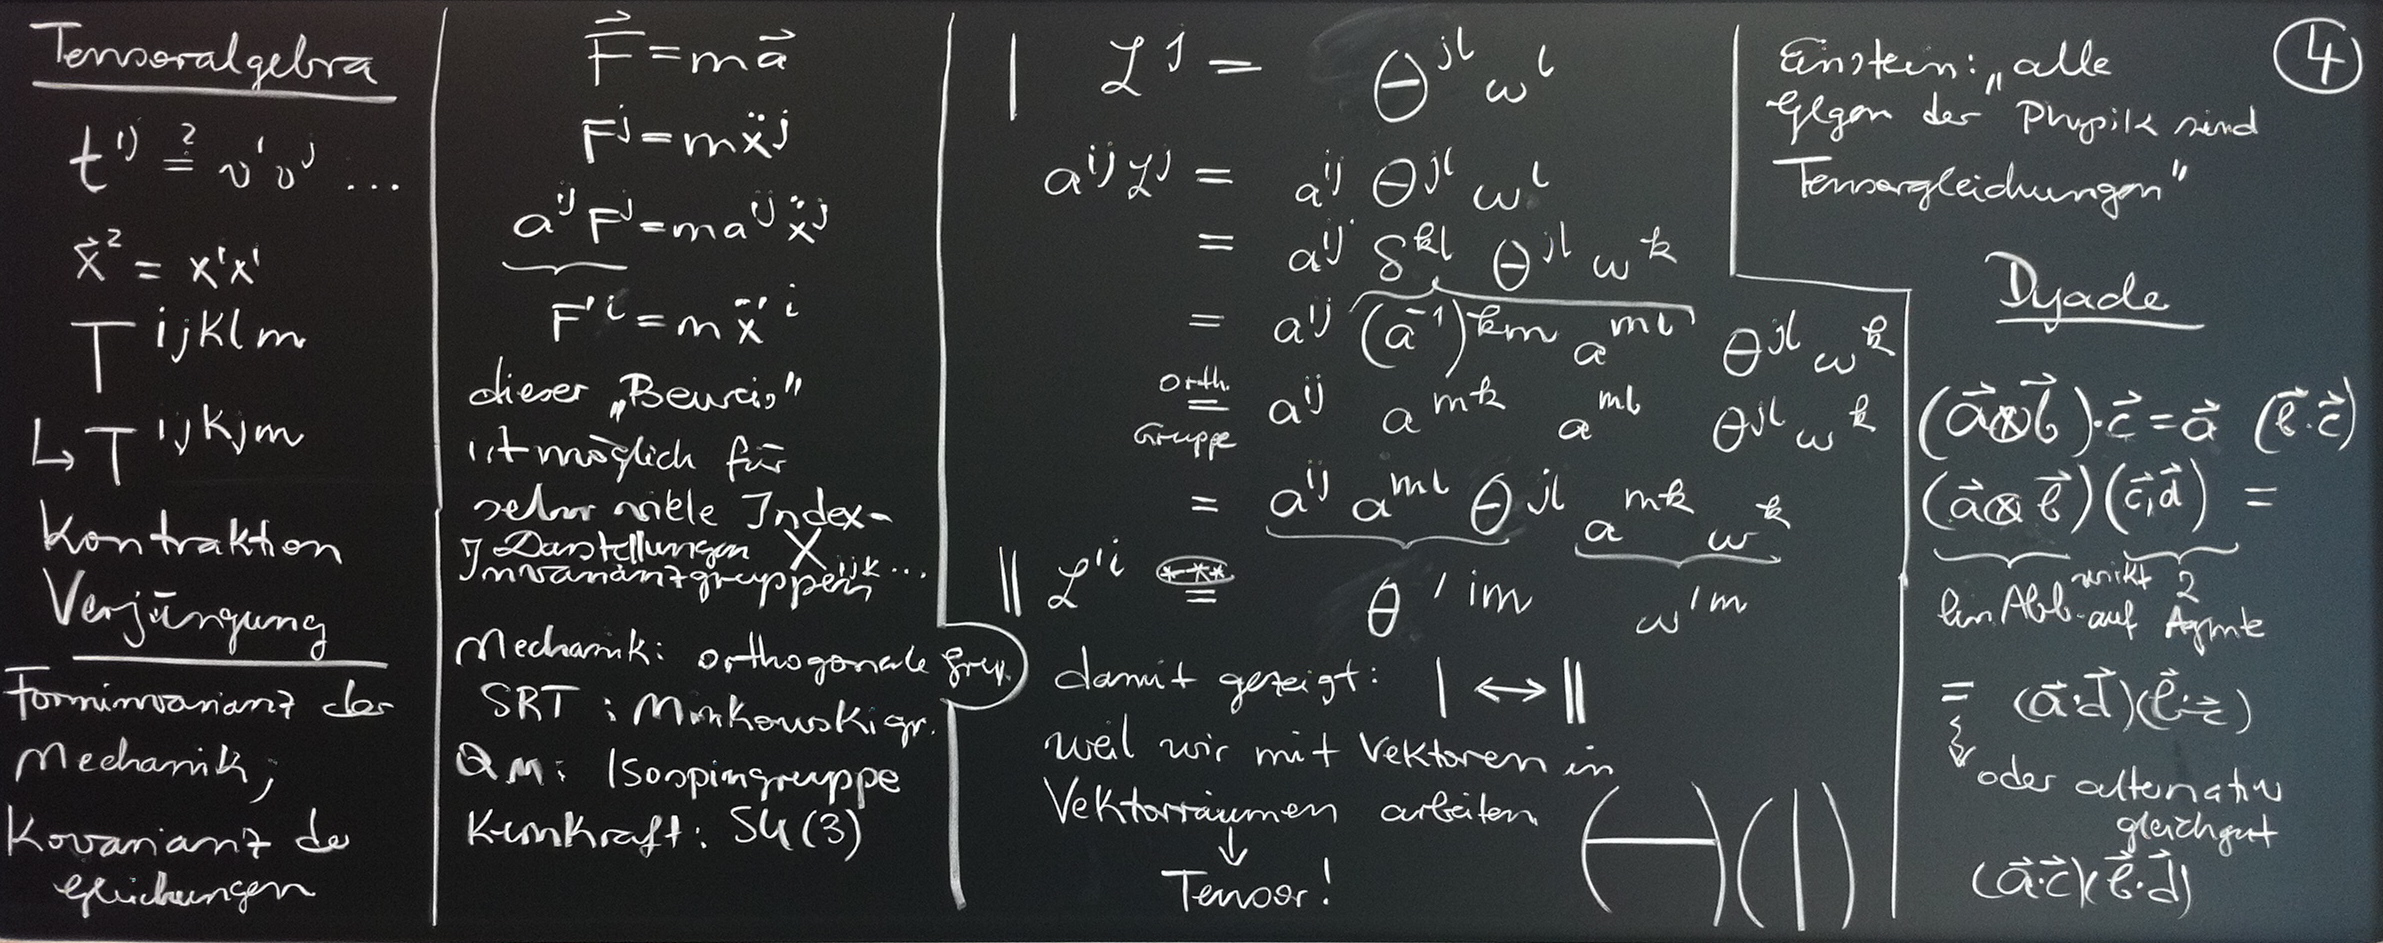 Tensoralgebra
t^{ij} ≟ v^i v^j ...
x⃗² = x^i x^i
T^{ijklm}
↳ T^{ijkjm}
Kontraktion
Verjüngung
Forminvarianz der
Mechanik;
Kovarianz de
Gleichungen
F⃗ = m a⃗
F^j = m ẍ^j
a^{ij} F^j = m a^{ij} ẍ^j
F'^i = m ẍ'^i
dieser „Beweis"
ist möglich für
sehr viele Index-
Darstellungen X^{ijk...}
Invarianzgruppen
Mechanik: orthogonale Grup.
SRT: Minkowskigr.
QM: Isospingruppe
Kernkraft: SU(3)
| L^j = Θ^{jl} ω^l
a^{ij} L^j = a^{ij} Θ^{jl} ω^l
= a^{ij} δ^{kl} Θ^{jl} ω^k
= a^{ij} (a^{-1})^{km} a^{ml} Θ^{jl} ω^k
orth.
= a^{ij} a^{mk} a^{ml} Θ^{jl} ω^k
Gruppe
= a^{ij} a^{ml} Θ^{jl} a^{mk} ω^k
|| L'^i *** = Θ'^{im} ω'^m
damit gezeigt: | ↔ ||
weil wir mit Vektoren in
Vektorräumen arbeiten
↓
Tensor!
(—)(|)
Einstein: „alle
Glgen der Physik sind
Tensorgleichungen"
④
Dyade
(a⃗⊗b⃗)·c⃗ = a⃗ (b⃗·c⃗)
(a⃗⊗b⃗)(c⃗,d⃗) =
lin Abb. wirkt auf 2
Agmte
= (a⃗·d⃗)(b⃗·c⃗)
oder alternativ
gleichgut
(a⃗·c⃗)(b⃗·d⃗)